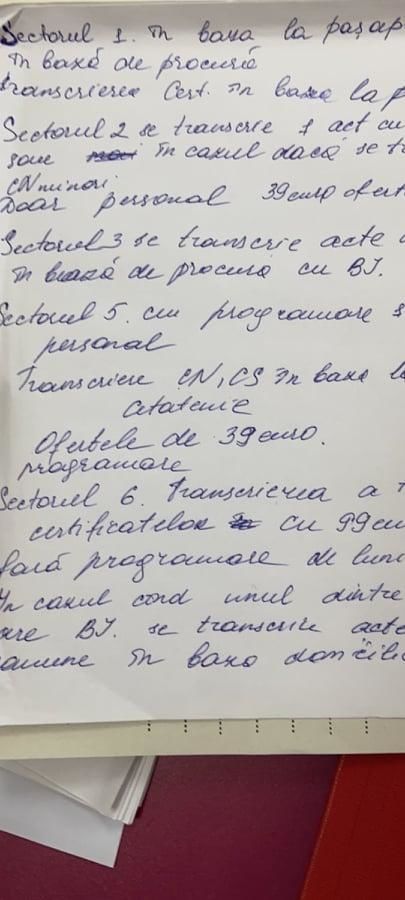 Sectorul 1. În baxa la pașap
În baxă de procură
Transcrierea Cert. în baxa la p
Sectorul 2 se transcrie 1 act cu
sau în caxul dacă se t
CN minori
Doar personal 39 euro ofert
Sectorul 3 se transcrie acte
în baxă de procură cu BI.
Sectorul 5. cu programare
personal
Transcriere CN, CS în baxa l
cetatenie
Ofertele de 39 euro.
programare
Sectorul 6. Transcrierea a
certificatelor cu 99 eu
fară programare de luni
În caxul cînd unul dintre
are BI. se transcrie acte
anume în baxa domicili